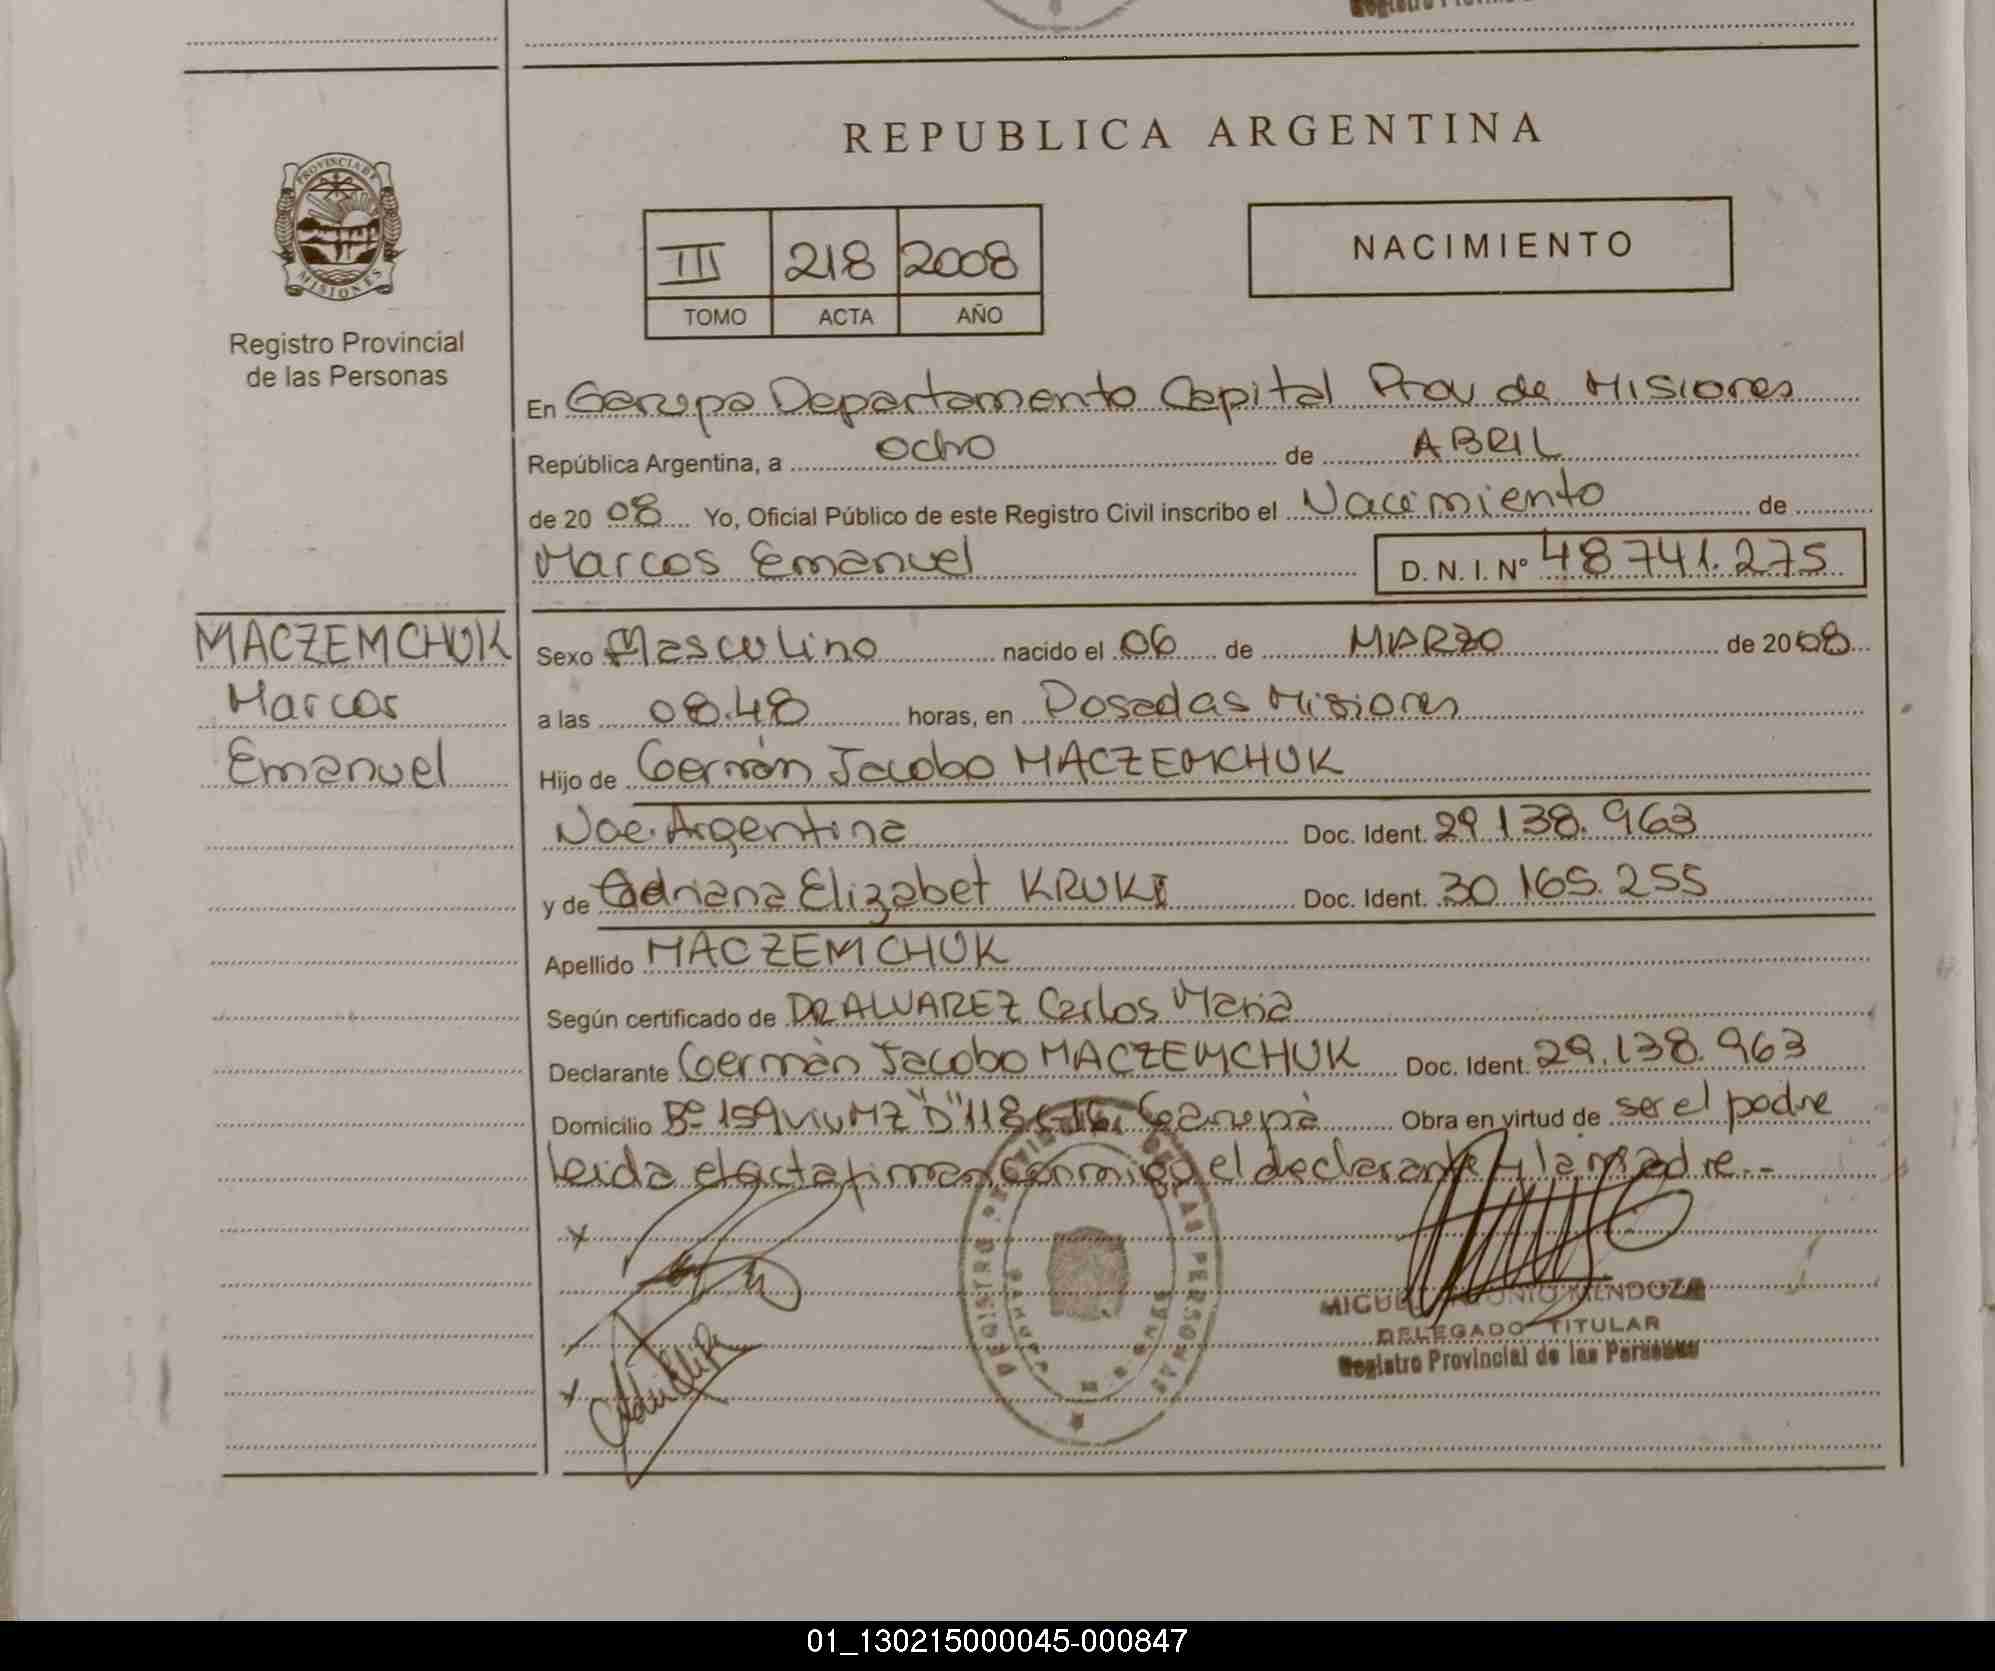 REPUBLICA ARGENTINA
PROVINCIA DE MISIONES
Registro Provincial
de las Personas
III 218 2008
TOMO ACTA AÑO
NACIMIENTO
En Garupa Departamento Capital Prov de Misiones
República Argentina, a ocho de ABRIL
de 20 08 Yo, Oficial Público de este Registro Civil inscribo el Nacimiento de
Marcos Emanuel D. N. I. Nº 48 741.275
MACZEMCHUK
Marcos
Emanuel
Sexo Masculino nacido el 06 de MARZO de 2008
a las 08.48 horas, en Posadas Misiones
Hijo de Germán Jacobo MACZEMCHUK
Nac. Argentina Doc. Ident. 29.138.963
y de Adriana Elizabet KRUKI Doc. Ident. 30 165.255
Apellido MACZEMCHUK
Según certificado de DR ALVAREZ Carlos Maria
Declarante Germàn Jacobo MACZEMCHUK Doc. Ident. 29.138.963
Domicilio Bº 159 Viv MZ "D" 118 Garupà Obra en virtud de ser el padre
leida el acta firman conmigo el declarante y la madre.-
REGISTRO PROVINCIAL DE LAS PERSONAS
MIGUEL ANTONIO MENDOZA
DELEGADO TITULAR
Registro Provincial de las Personas
01_130215000045-000847